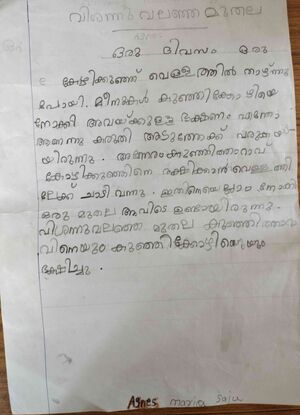 വിശന്നു വലഞ്ഞ മുതല
ഒരു ദിവസം ഒരു
കോഴിക്കുഞ്ഞ് വെള്ളത്തിൽ താഴ്ന്നു
പോയി. മീനുകൾ കുഞ്ഞിക്കോഴിയെ
നോക്കി അവയ്ക്കുള്ള ഭക്ഷണം എന്നോ
അണന്നു കരുതി അടുത്തേക്ക് വരുന്നു
യിരുന്നു. അന്നേരം കുഞ്ഞിത്താറാവ്
കോഴിക്കുഞ്ഞിനെ രക്ഷിക്കാൻ വെള്ളത്തി
ലേക്ക് ചാടി വന്നു. ഇതിനെയെല്ലാം നോക്കി
ഒരു മുതല അവിടെ ഉണ്ടായിരുന്നു.
വിശന്നുവലഞ്ഞ മുതല കുഞ്ഞിത്താറാ
വിനെയും കുഞ്ഞിക്കോഴിയെയും
ഭക്ഷിച്ചു.
Agnes Maria Saju